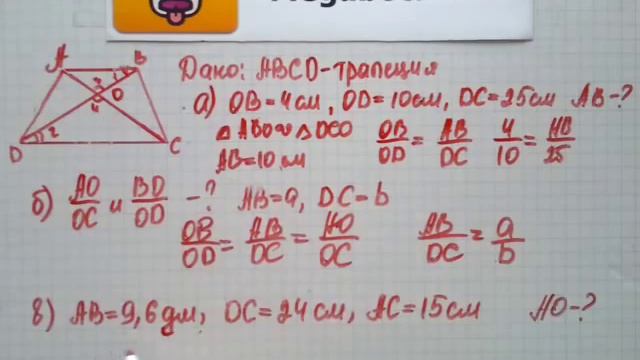 A B
3 1
O
4
2
D C
Дано: ABCD-трапеция
а) OB=4см, OD=10см, DC=25см AB-?
△ABO∾△DCO OB/OD = AB/DC 4/10 = AB/25
AB=10см
б) AO/OC и BO/OD -? AB=a, DC=b
OB/OD = AB/DC = AO/OC AB/DC = a/b
в) AB=9,6дм, DC=24см, AC=15см AO-?